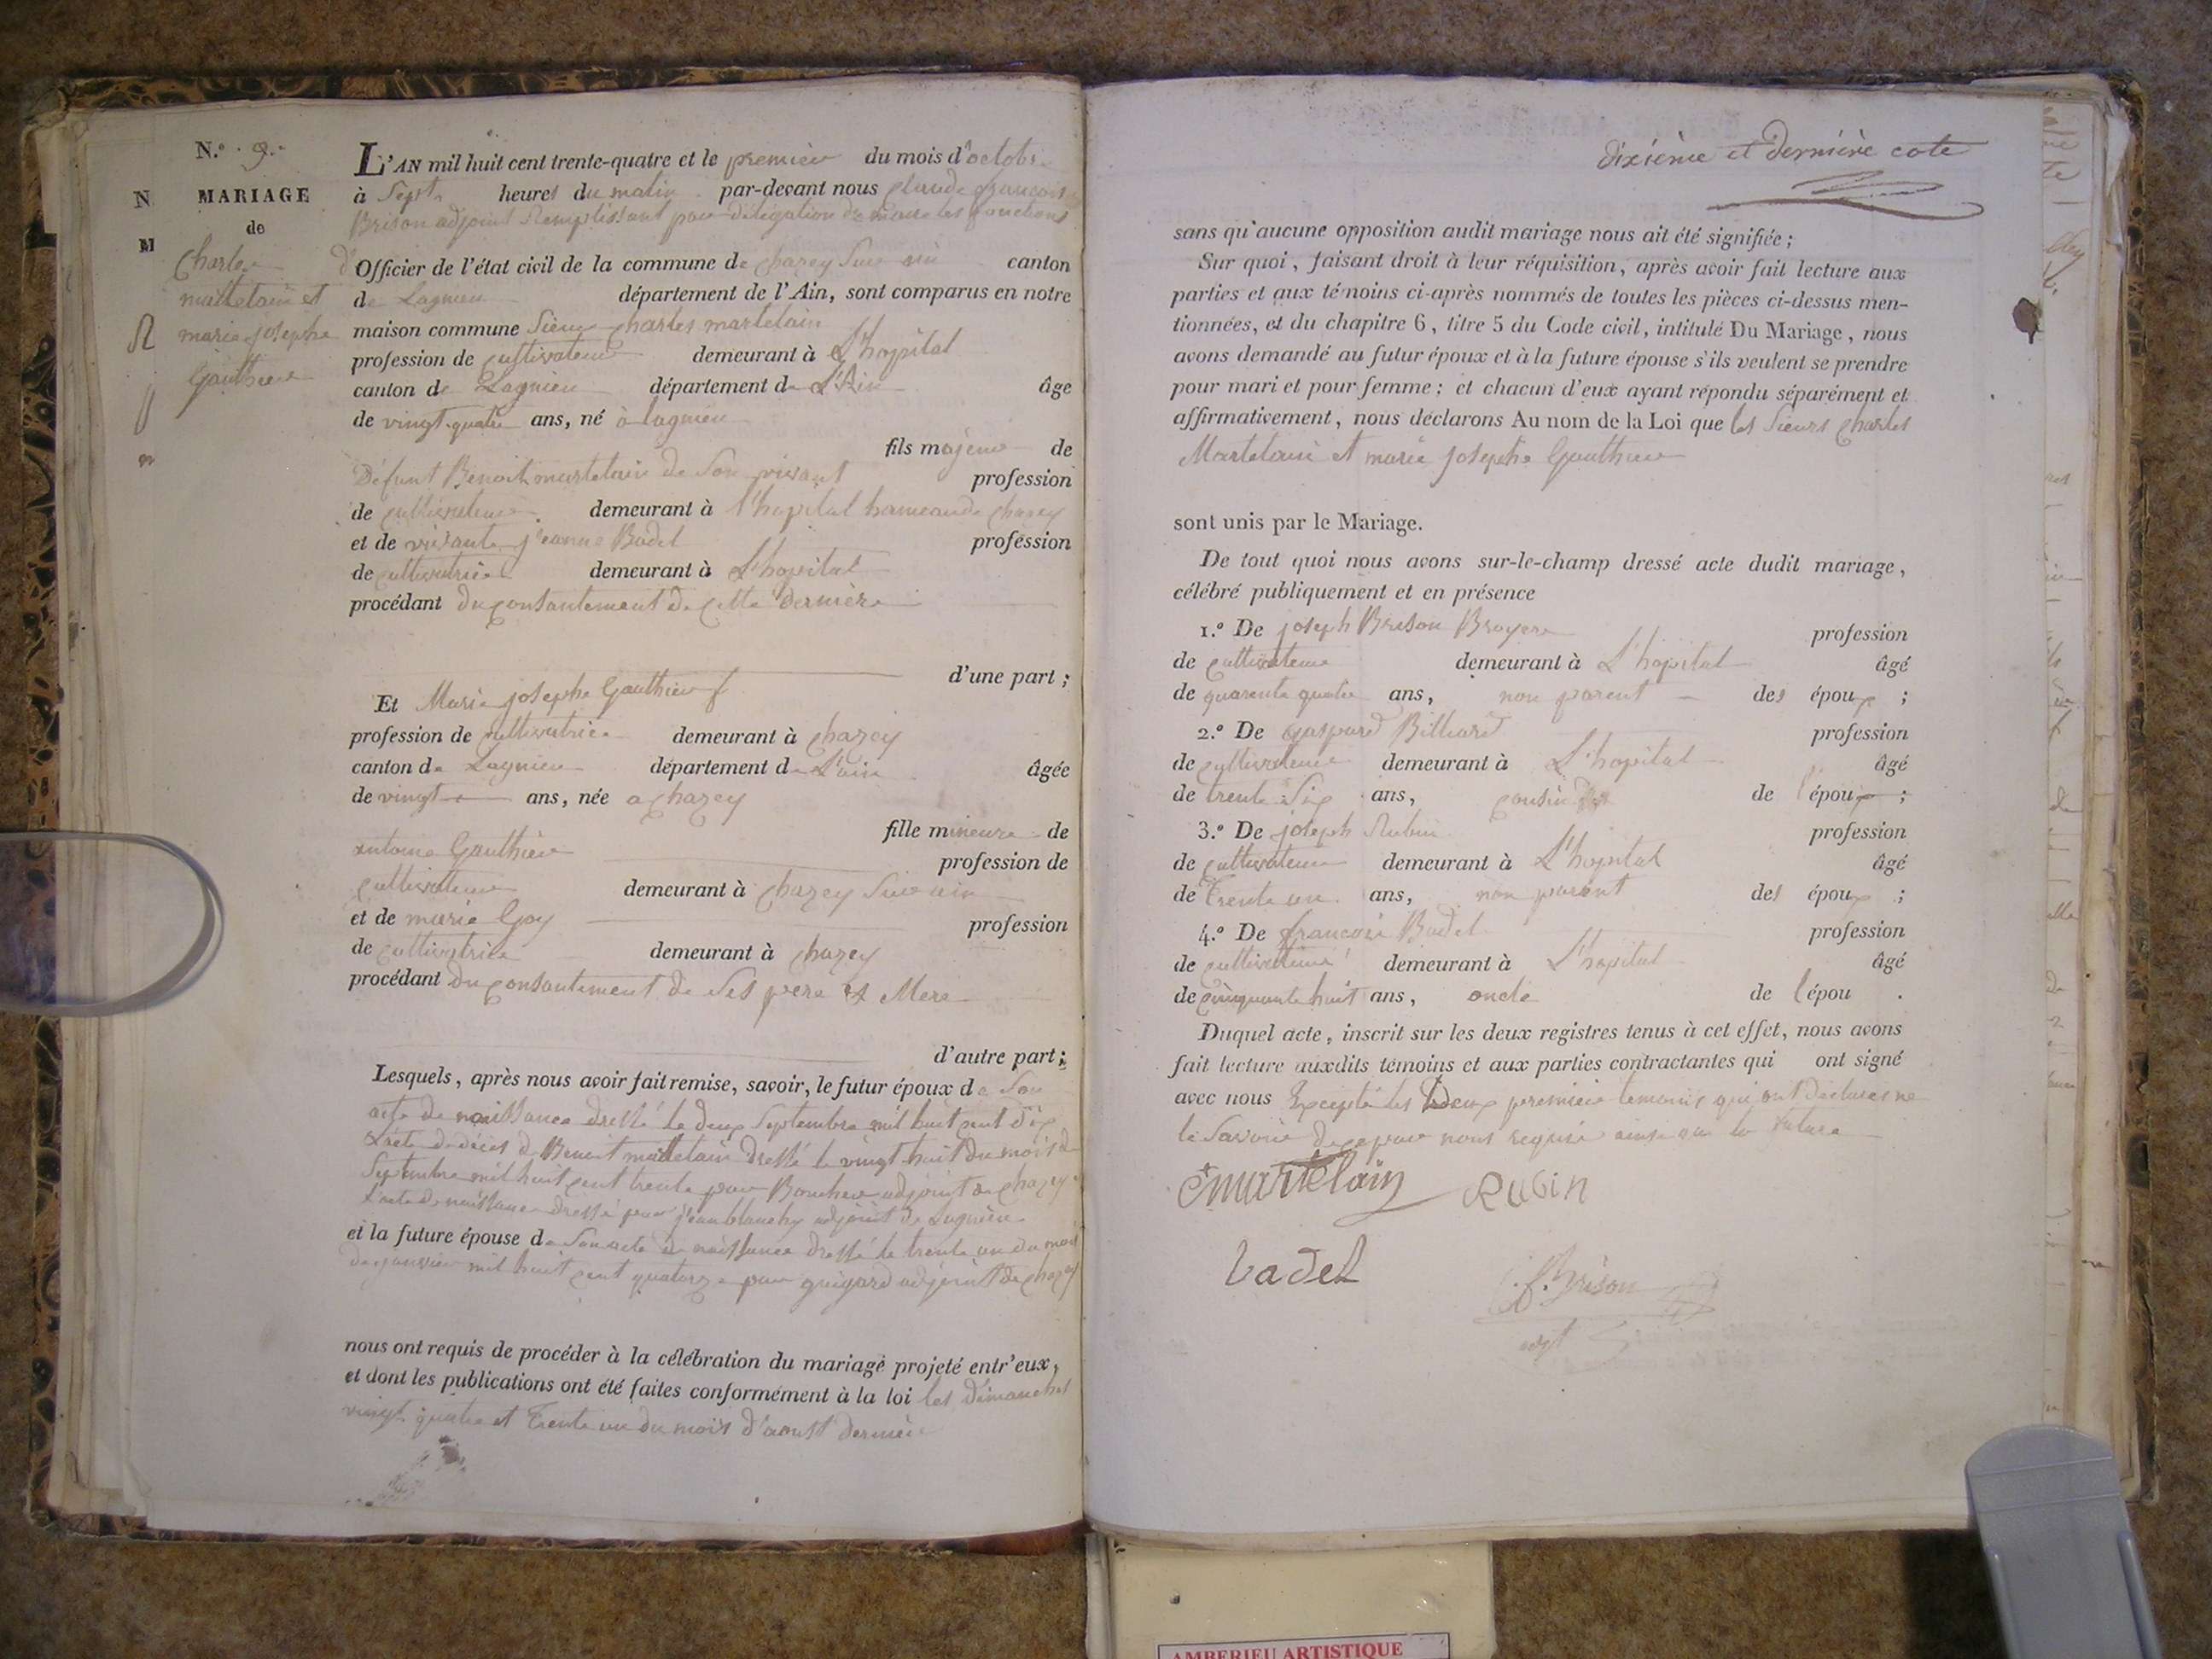 N.o 9.
MARIAGE
de
Charles
martelain et
marie josephe
Gauthier
N
M
L'AN mil huit cent trente-quatre et le premier du mois d'octobre
à Sept heures du matin par-devant nous Claude françois
Brison adjoint Remplissant par délégation du maire les fonctions
d'Officier de l'état civil de la commune de chazey Sur ain canton
de Lagnieu département de l'Ain, sont comparus en notre
maison commune Sieur Charles martelain
profession de cultivateur demeurant à L'hopital
canton de Lagnieu département de L'Ain âgé
de vingt-quatre ans, né à lagnieu
fils majeur de
Défunt Benoit martelain de Son vivant profession
de cultivateur demeurant à l'hopital hameau de chazey
et de vivante jeanne Badel profession
de cultivatrice demeurant à L'hopital
procédant du consantement de cette dernière
d'une part ;
Et Marie josephe Gauthier
profession de cultivatrice demeurant à chazey
canton de Lagnieu département de L'ain âgée
de vingt ans, née a chazey
fille mineure de
antoine Gauthier profession de
cultivateur demeurant à chazey Sur ain
et de marie Goy profession
de cultivatrice demeurant à chazey
procédant du consantement de Ses pere et Mere
d'autre part ;
Lesquels, après nous avoir fait remise, savoir, le futur époux de Son
acte de naissance dressé le deux Septembre mil huit cent dix
de décès de Benoit martelain dressé le vingt huit du mois de
Septembre mil huit cent trente par Boucher adjoint de chazey
l'acte de naissance dressé par jean adjoint de Lagnieu
et la future épouse de Son acte de naissance dressé le trente un du mois
de janvier mil huit cent quatorze par guigard adjoint de chazey
nous ont requis de procéder à la célébration du mariage projeté entr'eux,
et dont les publications ont été faites conformément à la loi les Dimanches
vingt quatre et Trente un du mois d'aoust dernier
dixième et dernière cote
sans qu'aucune opposition audit mariage nous ait été signifiée ;
Sur quoi, faisant droit à leur réquisition, après avoir fait lecture aux
parties et aux témoins ci-après nommés de toutes les pièces ci-dessus men-
tionnées, et du chapitre 6, titre 5 du Code civil, intitulé Du Mariage, nous
avons demandé au futur époux et à la future épouse s'ils veulent se prendre
pour mari et pour femme ; et chacun d'eux ayant répondu séparément et
affirmativement, nous déclarons Au nom de la Loi que les Sieurs Charles
Martelain et marie josephe Gauthier
sont unis par le Mariage.
De tout quoi nous avons sur-le-champ dressé acte dudit mariage,
célébré publiquement et en présence
1.o De joseph Brison Bruyere profession
de cultivateur demeurant à L'hopital âgé
de quarente quatre ans, non parent des époux ;
2.o De gaspard Billiard profession
de cultivateur demeurant à L'hopital âgé
de trente Six ans, cousin de l'époux ;
3.o De joseph Rubin profession
de cultivateur demeurant à L'hopital âgé
de Trente un ans, non parent des époux ;
4.o De françois Badel profession
de cultivateur demeurant à L'hopital âgé
de cinquante huit ans, oncle de l'épou .
Duquel acte, inscrit sur les deux registres tenus à cet effet, nous avons
fait lecture auxdits témoins et aux parties contractantes qui ont signé
avec nous Excepté les Deux premiers temoins qui ont déclarés ne
le Savoir de ce par nous requis ainsi que la future
C martelain Rubin
badel
f. Brison
adjt
AMBERIEU ARTISTIQUE